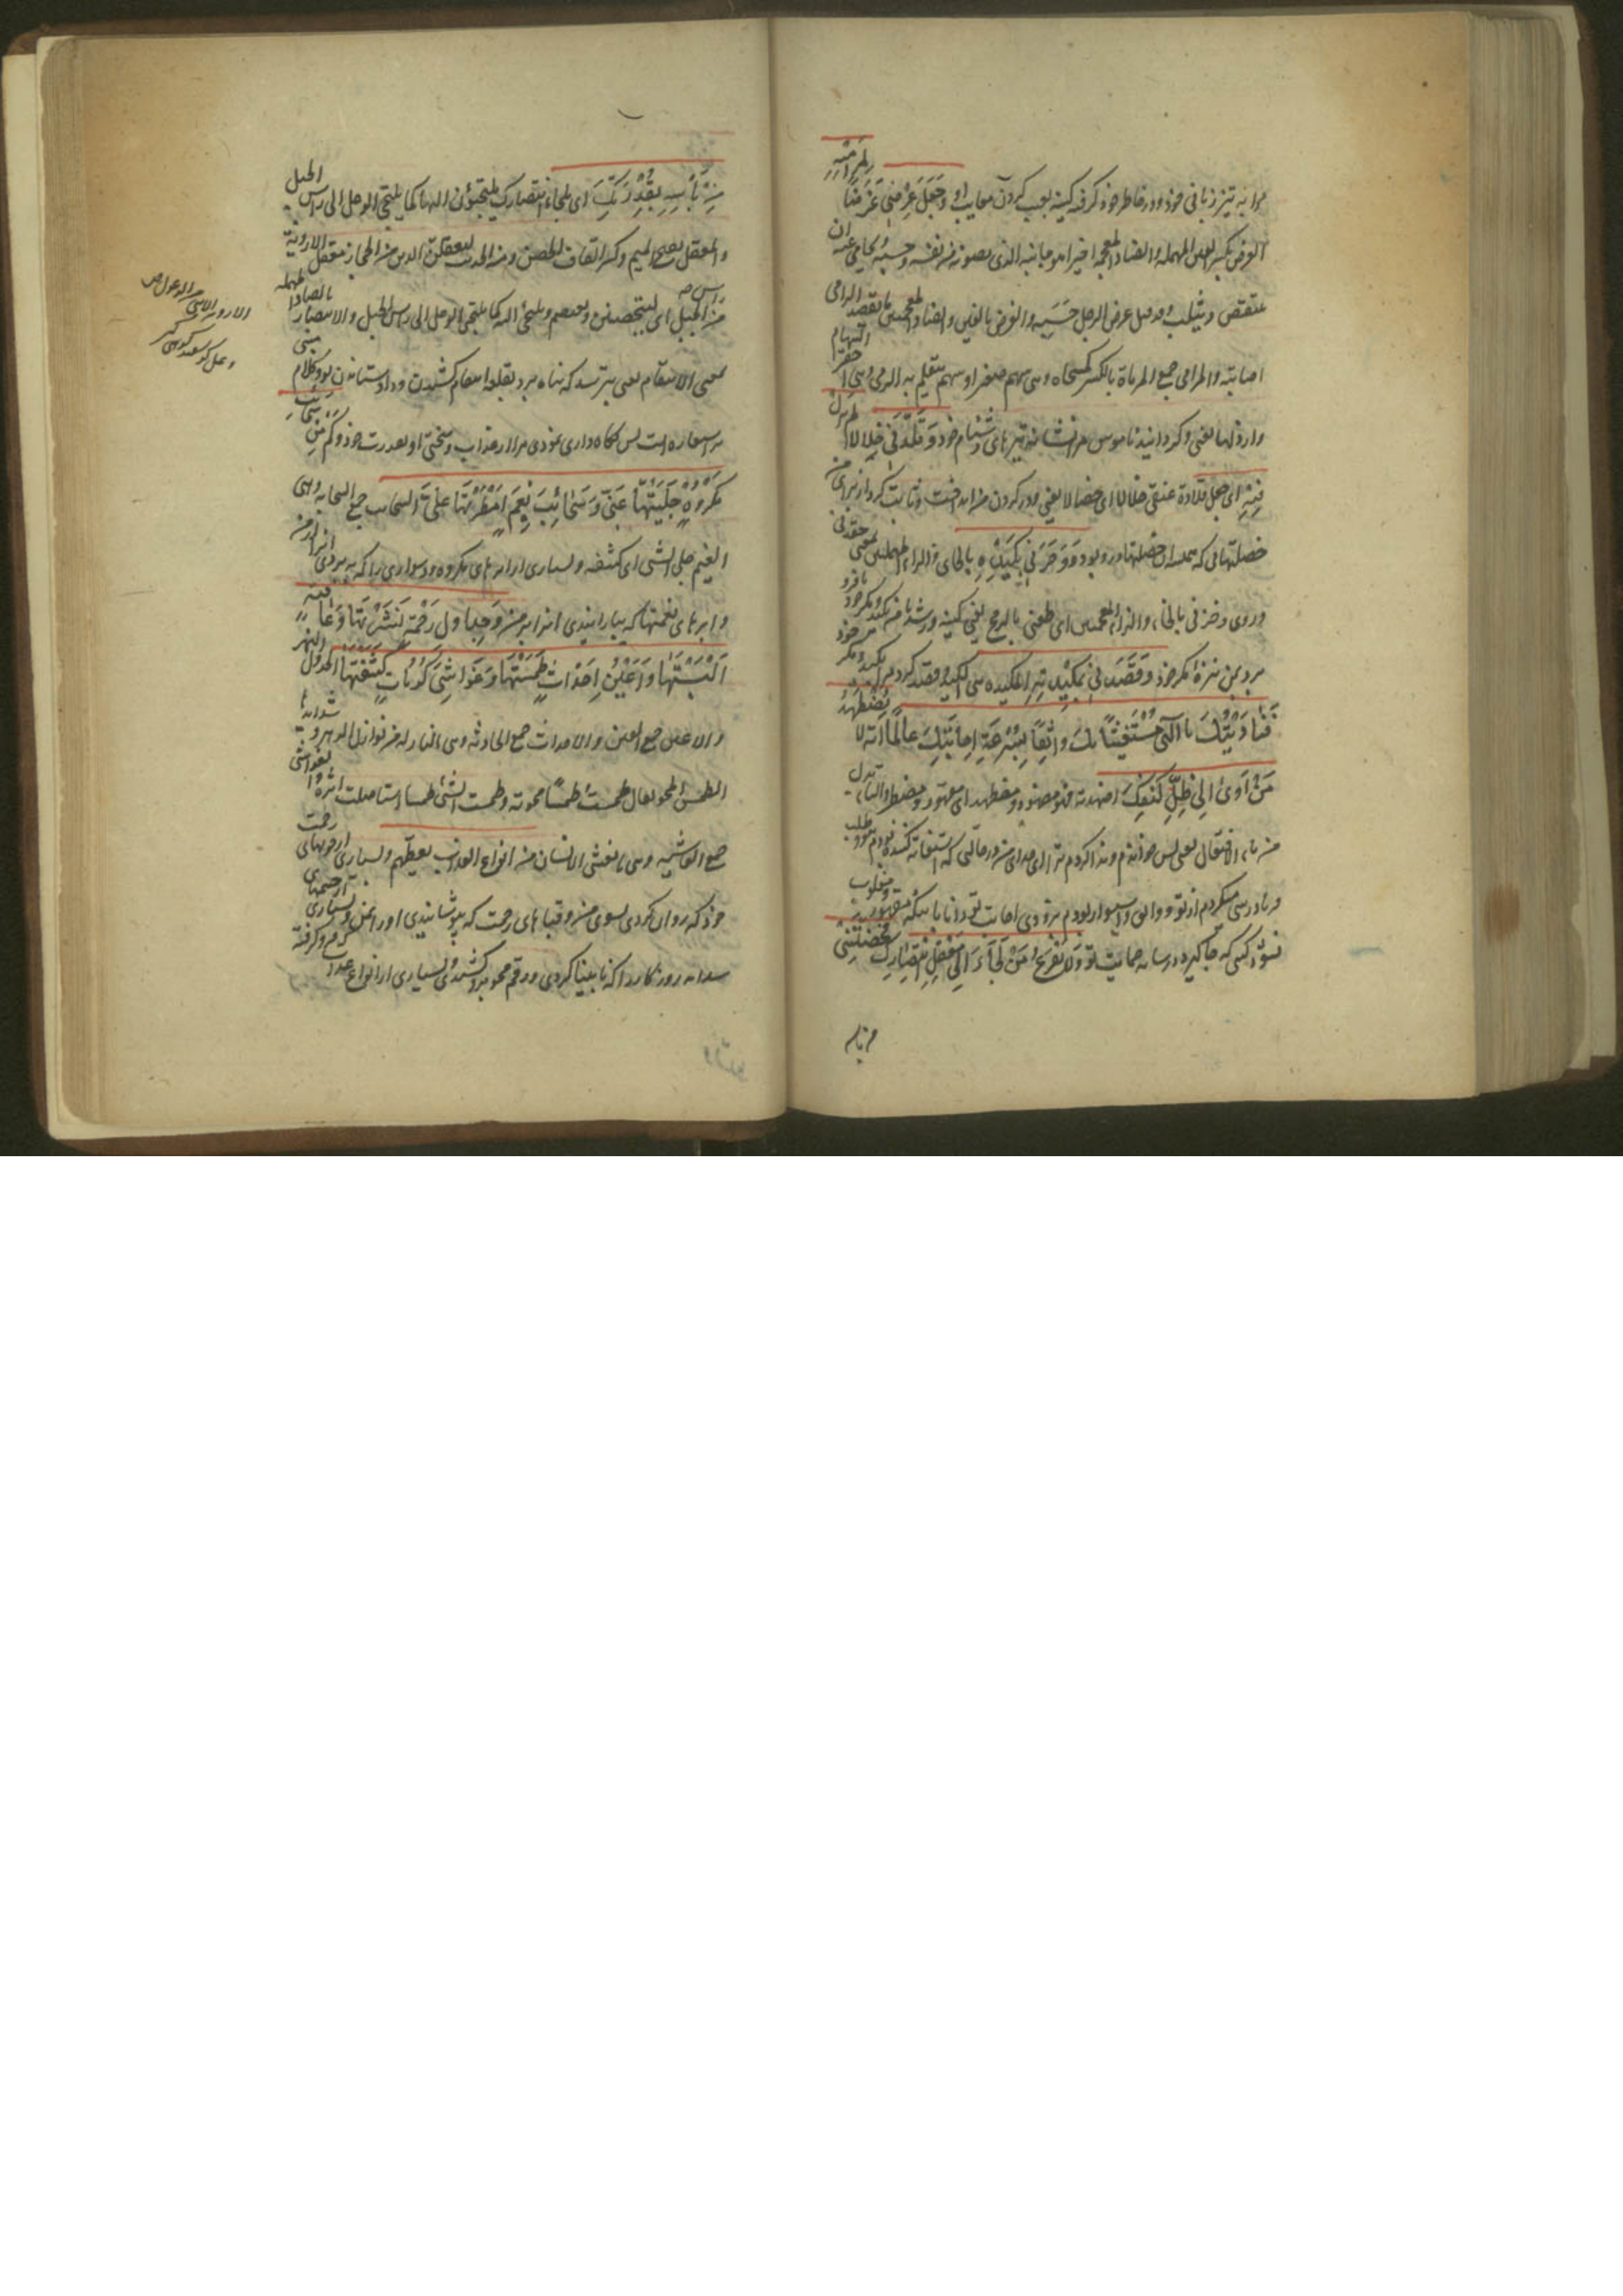 مرا به تیزی زبانی خود و در خاطر خود گرفته کینه بعیب کردن معایب او وَجَعَلَ عِرْضِی غَرَضًا لِمَرَامِیهِ
العرض بکسر العین المهملة والضاد المعجمة اخیرا هو جانبه الذی یصونه من نفسه وحسبه و یحامی عنه ان
ینتقص و یثلب و قد قیل عرض الرجل حسبه والغرض بالغین والضاد المعجمتین ما یقصد الرامی
اصابته والمرامی جمع المرماة بالکسر کمسحاة وهی سهم صغیر او سهم یتعلم به الرمی وهی احقر السهام
واردلها یعنی و گردانید ناموس مرا نشانه تیرهای دشنام خود وَقَلَّدَنِی خِلَالًا لَمْ تَزَلْ
فِیهِ ای جعل قلادة عنقی خلالا ای خصالا یعنی و در گردن من انداخت و ثابت کرد از برای من
خصلتهایی که همیشه آن خصلتها در و بود وَوَحَرَنِی بِکَیْدِهِ بالحاء والراء المهملتین بمعنی حقدنی
وروی وخزنی بالخاء والزاء المعجمتین ای طعننی بالرمح یعنی کینه ور شد با من بکید و مکر خود یا فرو
برد بمن نیزه مکر خود وَقَصَدَنِی بِمَکِیدَتِهِ المکیدة هی الکید و قصد کرد مرا بکید و مکر خود
فَنَادَیْتُکَ یَا اِلٰهِی مُسْتَغِیثًا بِکَ وَاثِقًا بِسُرْعَةِ اِجَابَتِکَ عَالِمًا اَنَّهُ لَا یُضْطَهَدُ
مَنْ اَوٰی اِلٰی ظِلِّ کَنَفِکَ اضهدته فهو مضهود و مضطهد ای مقهور و مضطر والطاء بدل
من تاء الافتعال یعنی پس خواندم و ندا کردم ترا ای خدای من در حالتی که استغاثه کننده بودم بتو و طلب
فریادرسی میکردم از تو و واثق و امیدوار بودم بزودی اجابت تو دانا باینکه مقهور و مغلوب
نشود کسی که جا گیرد در سایه حمایت تو وَلَا یَفْزَعُ مَنْ لَجَأَ اِلٰی مَعْقِلِ انْتِصَارِکَ فَحَصَّنْتَنِی
من باسه
مِنْ بَأْسِهِ بِقُدْرَتِکَ ای ملجاء انتصارک یلتجئون الیها کما یلتجی الوعل الی راس الجبل
والمعقل بفتح المیم و کسر القاف الحصن و منه الحدیث لیعقلن الدین من الحجاز معقل الارویة
من راس الجبل ای لیتحصنن و یعتصم و یلتجئ الیه کما یلتجی الوعل الی راس الجبل والانتصار بالصاد المهملة
بمعنی الانتقام یعنی نترسد که پناه برد بقلعه انتقام کشیدن و داد ستاندن تو و کلام مبنی
بر استعاره است پس نگاه داری نمودی مرا از عذاب و سختی او بقدرت خود وَکَمْ مِنْ سَحَائِبِ
مَکْرُوهٍ جَلَّیْتَهَا عَنِّی وَسَحَائِبَ نِعَمٍ اَمْطَرْتَهَا عَلَیَّ السحائب جمع السحابة وهی
الغیم جلی الشی ای کشفه و بسیاری از ابرهای مکروه و دشواری را که ببردی آنرا از من
و ابرهای نعمتها که ببارانیدی آنرا بر من وَجَدَاوِلَ رَحْمَةٍ نَشَرْتَهَا وَعَافِیَةٍ
اَلْبَسْتَهَا وَاَعْیُنِ اَحْدَاثٍ طَمَسْتَهَا وَغَوَاشِیَ کُرُبَاتٍ کَشَفْتَهَا الجدول النهر
والاعین جمع العین والاحداث جمع الحادثة وهی النازلة من نوازل الدهر و شدائدها
الطمس المحو یقال طمست طمسا محوته و طمست الشئ طمسا استاصلت اثره والغواشی
جمع الغاشیة وهی ما یغشی الانسان من انواع العذاب یغطیهم و بسیاری از جویهای رحمت
خود که روان کردی بسوی من و قباهای رحمت که پوشانیدی او را بمن و بسیاری از چشمهای
شدائد روزگار را که نابینا کردی و رقم محو برو کشیدی و بسیاری از انواع
الارویة الانثی من الوعول ص